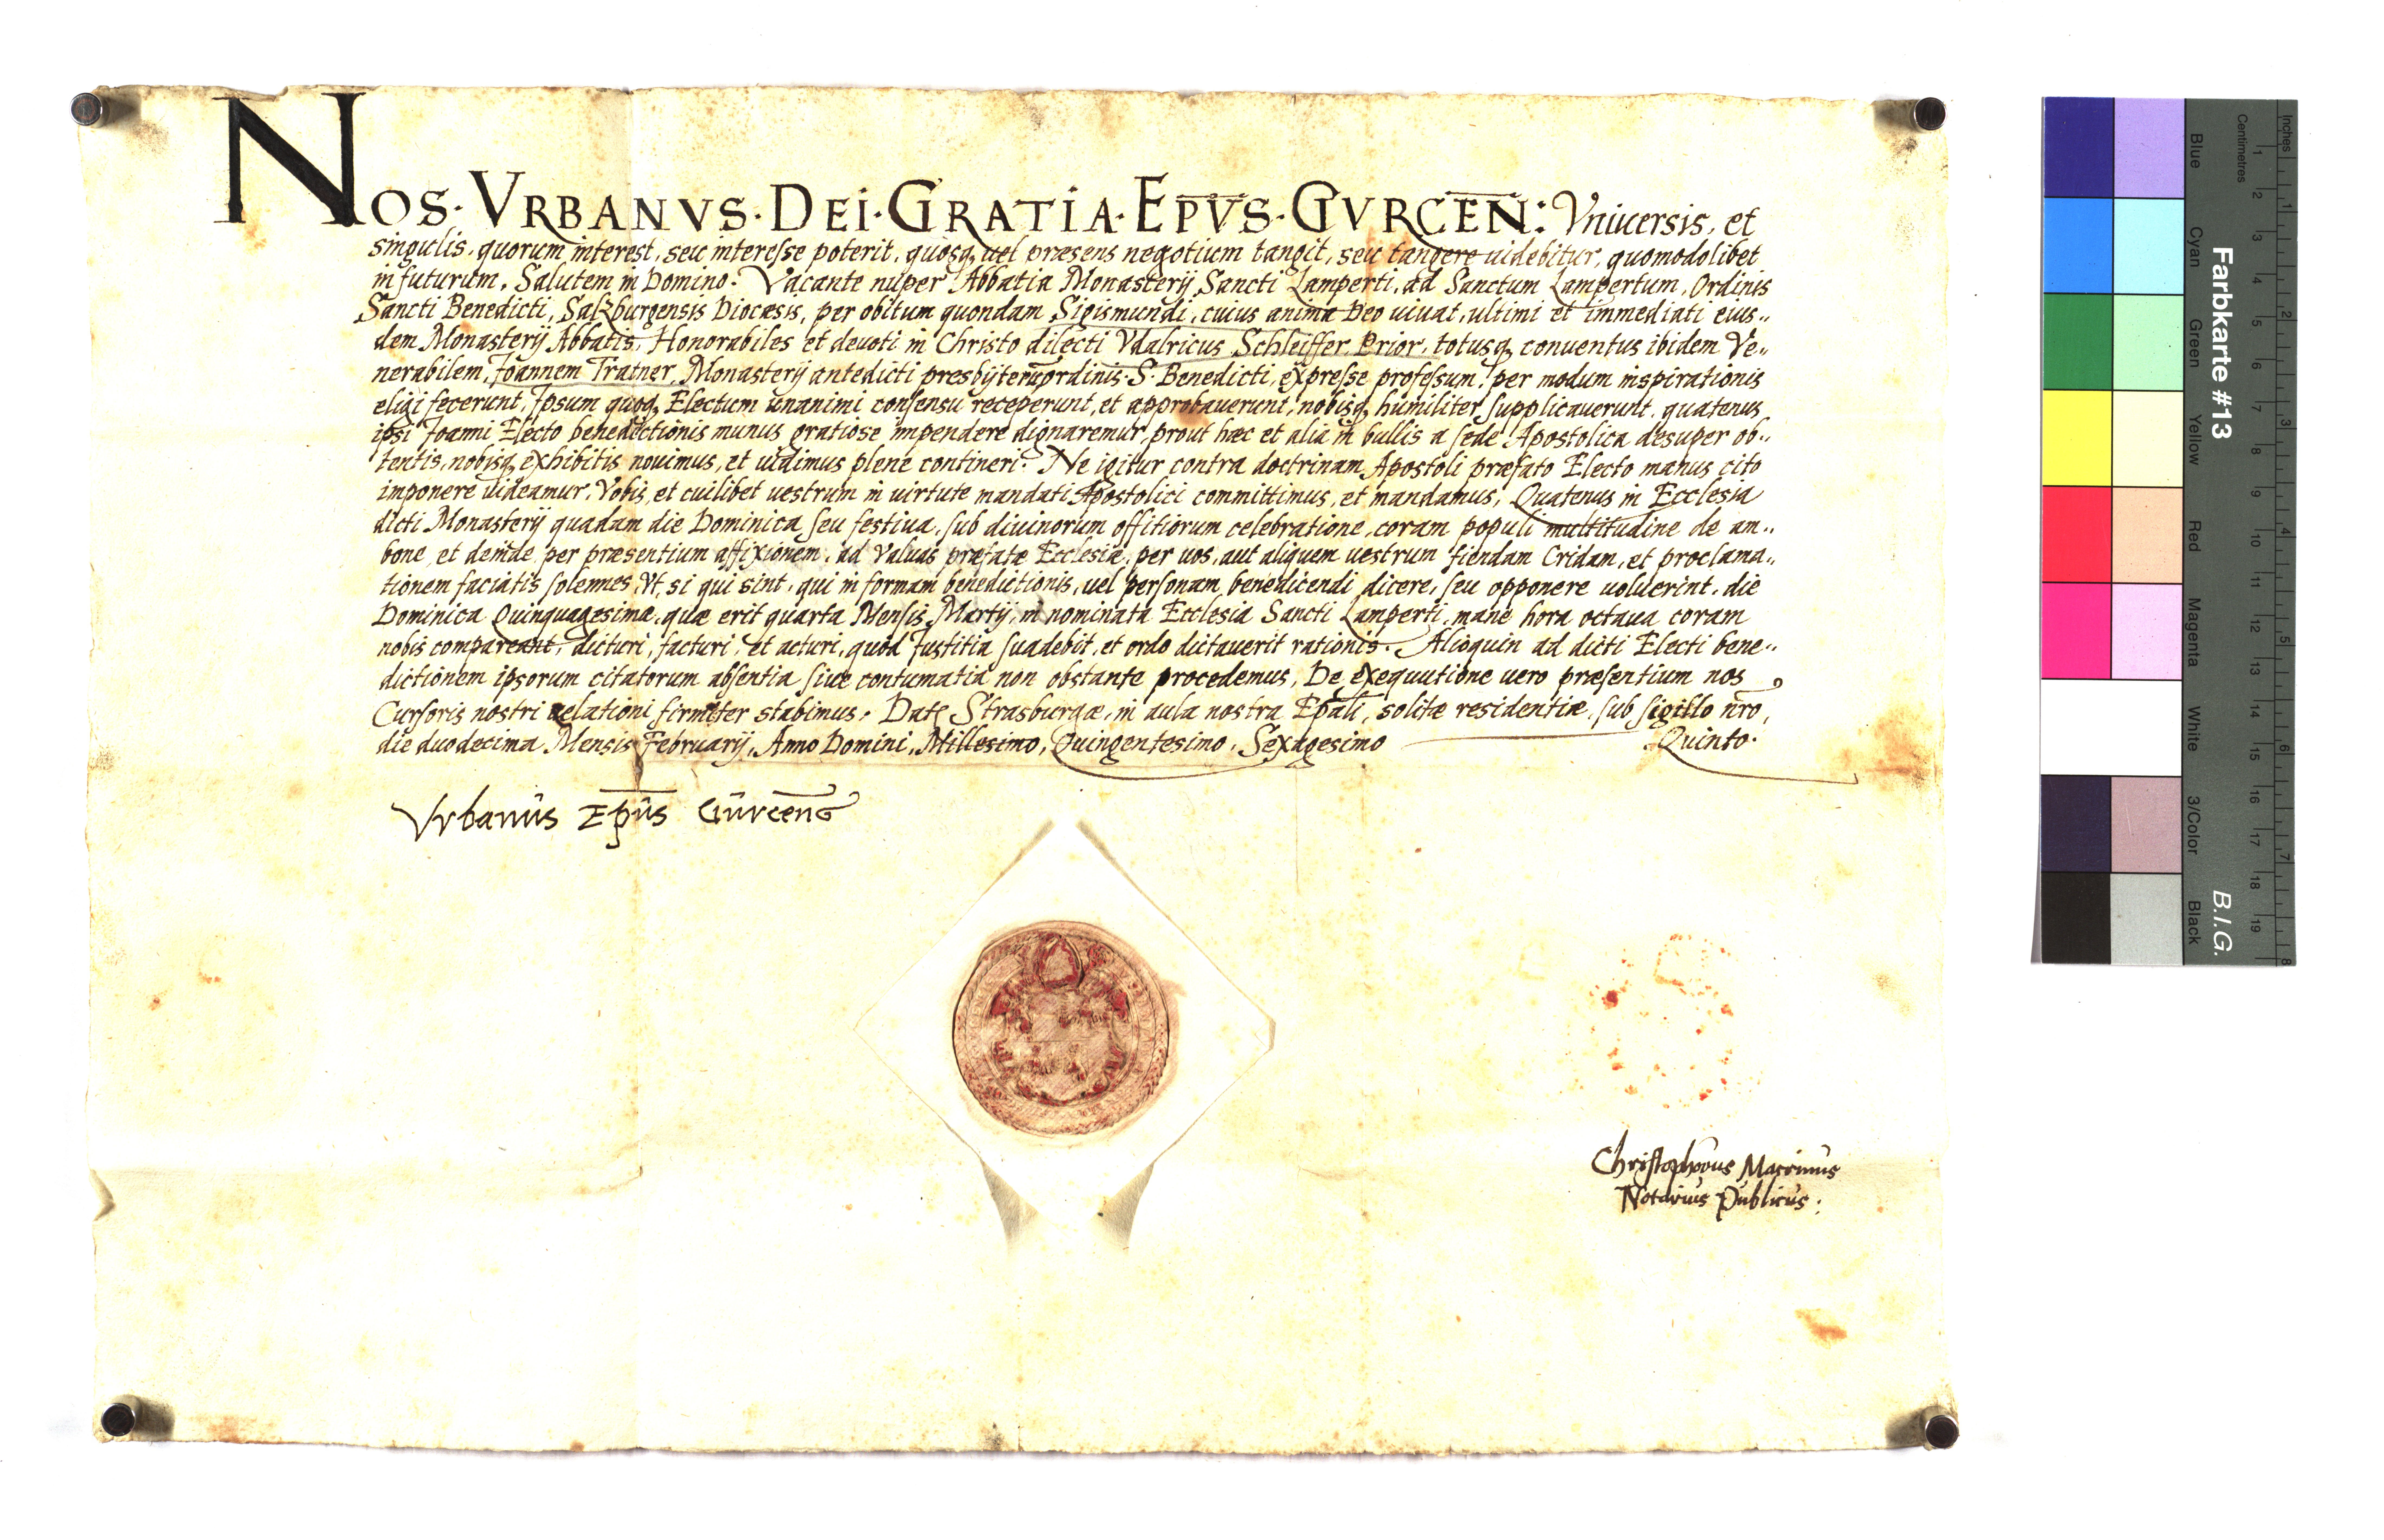 NOS · VRBANVS · DEI · GRATIA · EPVS · GVRCEN: Vniuersis, et
singulis, quorum interest, seu interesse poterit, quosq, uel præsens negotium tangit, seu tangere uidebitur, quomodolibet
in futurum, Salutem in Domino. Vacante nuper Abbatia Monasterij Sancti Lamperti, ad Sanctum Lampertum, Ordinis
Sancti Benedicti, Salzburgensis Diocæsis, per obitum quondam Sigismundi, cuius anima Deo uiuat, ultimi et immediati eius..
dem Monasterij Abbatis, Honorabiles et deuoti in Christo dilecti Vdalricus Schleiffer Prior, totusq, conuentus ibidem Ve..
nerabilem, Joannem Tratner, Monasterij antedicti presbyterum ordinis S. Benedicti, expresse professum, per modum inspirationis
eligi fecerunt, Ipsum quoq, Electum unanimi consensu receperunt, et approbauerunt, nobisq, humiliter supplicauerunt, quatenus
ipsi Joanni Electo benedictionis munus gratiose impendere dignaremur, prout hæc et alia in bullis a sede Apostolica desuper ob..
tentis, nobisq, exhibitis nouimus, et uidimus plene contineri. Ne igitur contra doctrinam Apostoli præfato Electo manus cito
imponere uideamur, Vobis, et cuilibet uestrum in uirtute mandati Apostolici committimus, et mandamus, Quatenus in Ecclesia
dicti Monasterij quadam die Dominica seu festiua, sub diuinorum offitiorum celebratione, coram populi multitudine de am..
bone, et deinde per præsentium affixionem, ad Valuas præfatæ Ecclesiæ, per uos, aut aliquem uestrum fiendam Cridam, et proclama..
tionem faciatis solennes, Vt, si qui sint, qui in formam benedictionis, uel personam benedicendi dicere, seu opponere uoluerint, die
Dominica Quinquagesimæ, quæ erit quarta Mensis Martij, in nominata Ecclesia Sancti Lamperti, mane hora octaua coram
nobis compareant, dicturi, facturi, et acturi, quod Justitia suadebit, et ordo dictauerit rationis. Alioquin ad dicti Electi bene..
dictionem ipsorum citatorum absentia siue contumatia non obstante procedemus, De exequutione uero præsentium nos
Cursoris nostri relationi firmiter stabimus. Datę Strasburgæ, in aula nostra Epali, solitæ residentiæ, sub sigillo nro,
die duodecima Mensis Februarij, Anno Domini, Millesimo, Quingentesimo, Sexagesimo Quinto.
Vrbanus Epus Gurceng
Christophorus
Notarius Publicus:
Farbkarte #13
B.I.G.
Inches
Centimetres
Blue Cyan Green Yellow Red Magenta White 3/Color Black
1 2 3 4 5 6 7 8 9 10 11 12 13 14 15 16 17 18 19
1 2 3 4 5 6 7 8